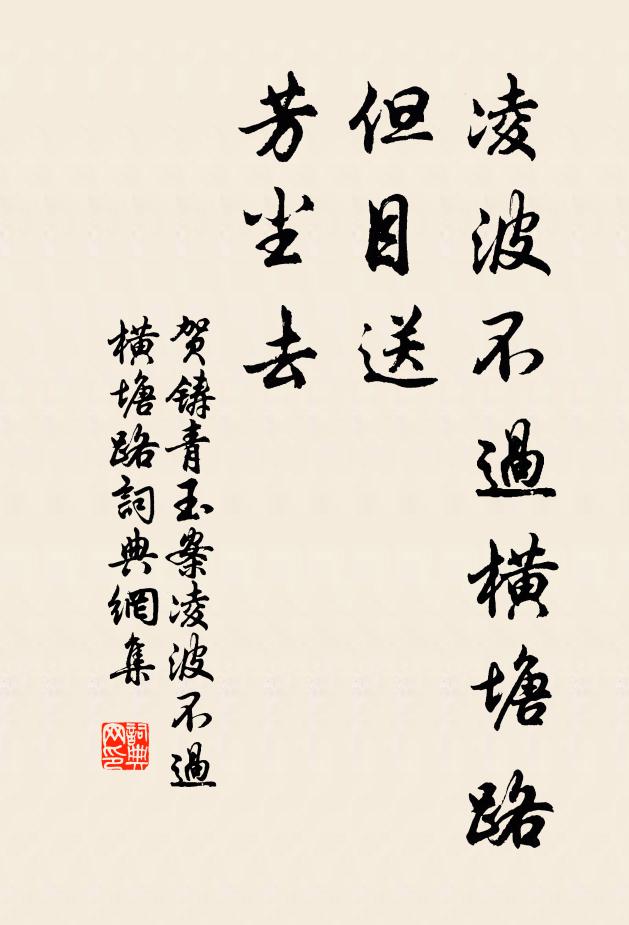 凌波不過橫塘路
但目送
芳尘去
贺鑄青玉案凌波不過
橫塘路詞典網集
詞典网印